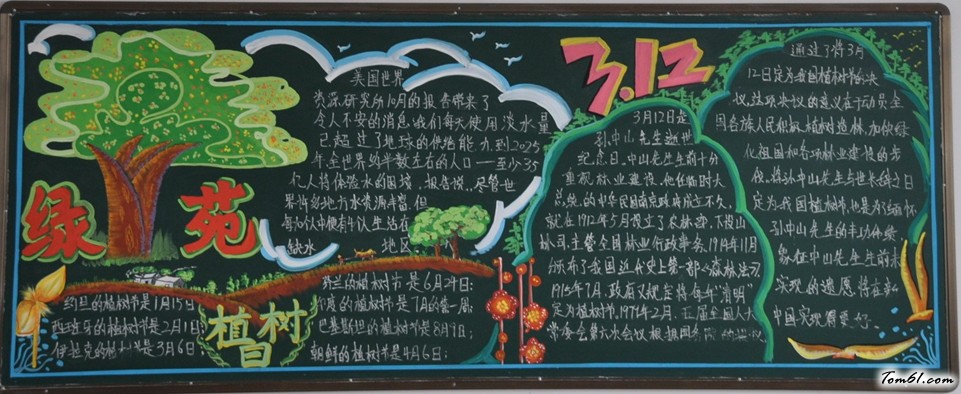 绿苑
美国世界
资源研究所10月的报告带来了
令人不安的消息:我们每天使用淡水量
已超过了地球的供给能力.到2025
年.全世界约半数左右的人口——至少35
亿人将体验水的困境,报告说,尽管世
界许多地方水资源丰富,但
每10人中便有4人生活在
缺水 地区
约旦的植树节是1月15日
西班牙的植树节是2月1日;
伊拉克的植树节是3月6日;
植树日
的植树节是6月24日;
印度的植树节是7月的第一周;
巴基斯坦的植树节是8月7日;
朝鲜的植树节是4月6日;
3.12
3月12日是
孙中山先生逝世
纪念日.中山先生生前十分
重视林业建设.他任临时大
总统的中华民国南京政府成立不久,
就在1912年5月设立了农林部,下设山
林司,主管全国林业行政事务.1914年11月
颁布了我国近代史上第一部《森林法》.
1915年7月,政府又规定将每年"清明"
定为植树节.1979年2月,五届全国人大
常委会第六次会议根据国务院
通过了将3月
12日定为我国植树节的决
议,这项决议的意义在于动员全
国各族人民积极植树造林,加快绿
化祖国和各项林业建设的步
伐.将孙中山先生与世长辞之日
定为我国植树节,也是为了缅怀
孙中山先生的丰功伟绩
象征中山先生生前未
实现的遗愿将在新
中国实现
Tom61.com